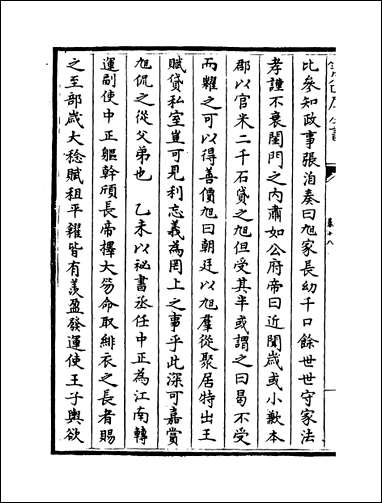 比參知政事張洎奏曰旭家長幼千口餘世世守家法
孝謹不衰閨門之內肅如公府帝曰近聞歲或小歉本
郡以官米二千石貸之旭但受其半或謂之曰曷不受
而糶之可以得善價旭曰朝廷以旭羣從聚居特出王
賦貸私室豈可見利忘義為罔上之事乎此深可嘉賞
旭侃之從父弟也　乙未以祕書丞任中正為江南轉
運副使中正軀幹頎長帝擇大笏命取緋衣之長者賜
之至部歲大稔賦租平糴皆有羨盈發運使王子輿欲